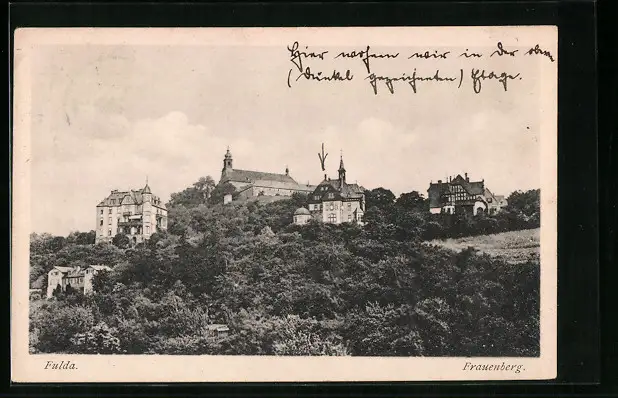 Hier wohnen wir in der oben
(dunkel gezeichneten) Etage.
Fulda.
Frauenberg.